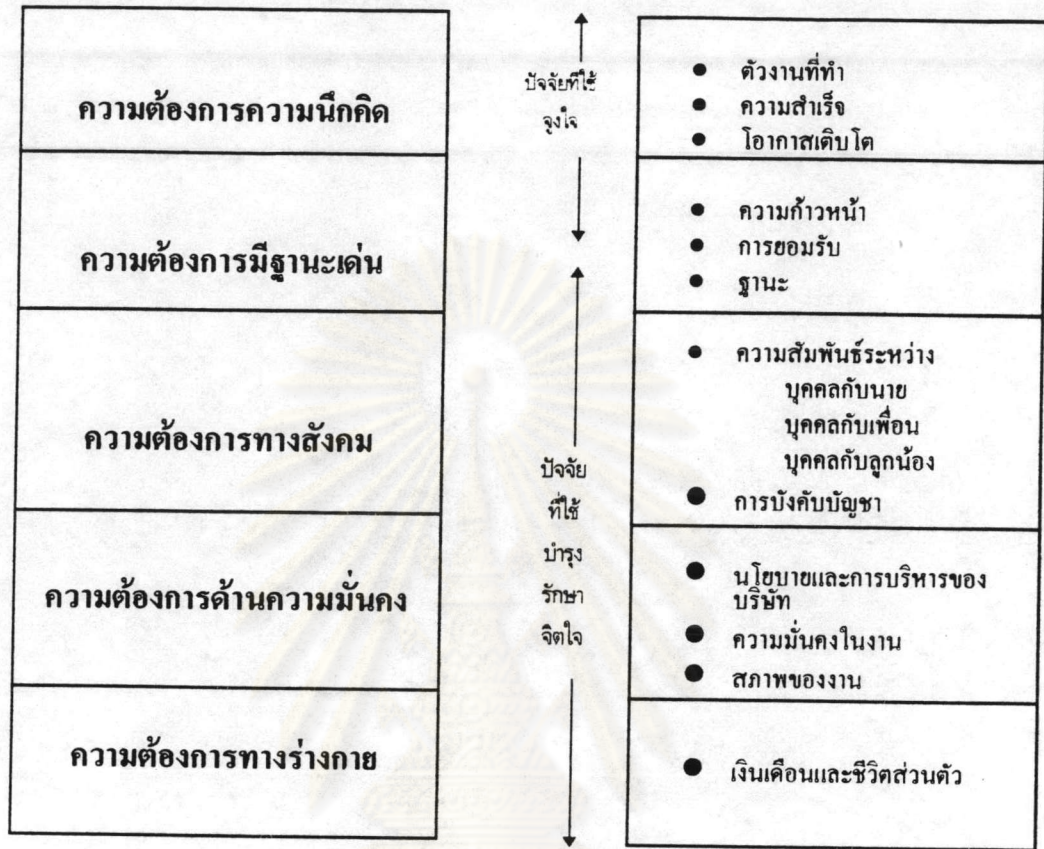 ความต้องการความนึกคิด
ความต้องการมีฐานะเด่น
ความต้องการทางสังคม
ความต้องการด้านความมั่นคง
ความต้องการทางร่างกาย
ปัจจัยที่ใช้
จูงใจ
ปัจจัย
ที่ใช้
บำรุง
รักษา
จิตใจ
● ตัวงานที่ทำ
● ความสำเร็จ
● โอกาสเติบโต
● ความก้าวหน้า
● การยอมรับ
● ฐานะ
● ความสัมพันธ์ระหว่าง
บุคคลกับนาย
บุคคลกับเพื่อน
บุคคลกับลูกน้อง
● การบังคับบัญชา
● นโยบายและการบริหารของ
บริษัท
● ความมั่นคงในงาน
● สภาพของงาน
● เงินเดือนและชีวิตส่วนตัว